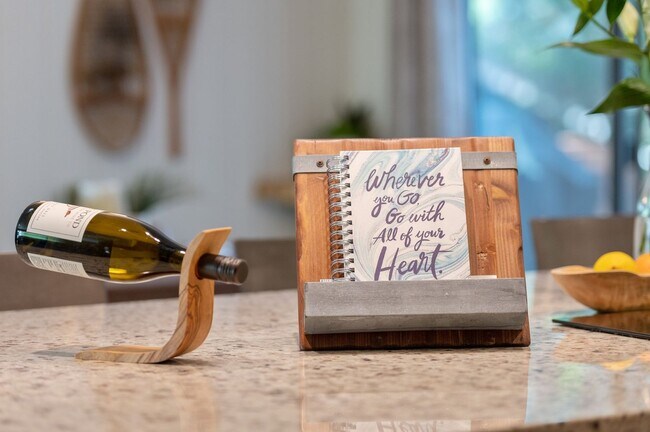 Wherever
you Go
Go with
All of your
Heart.